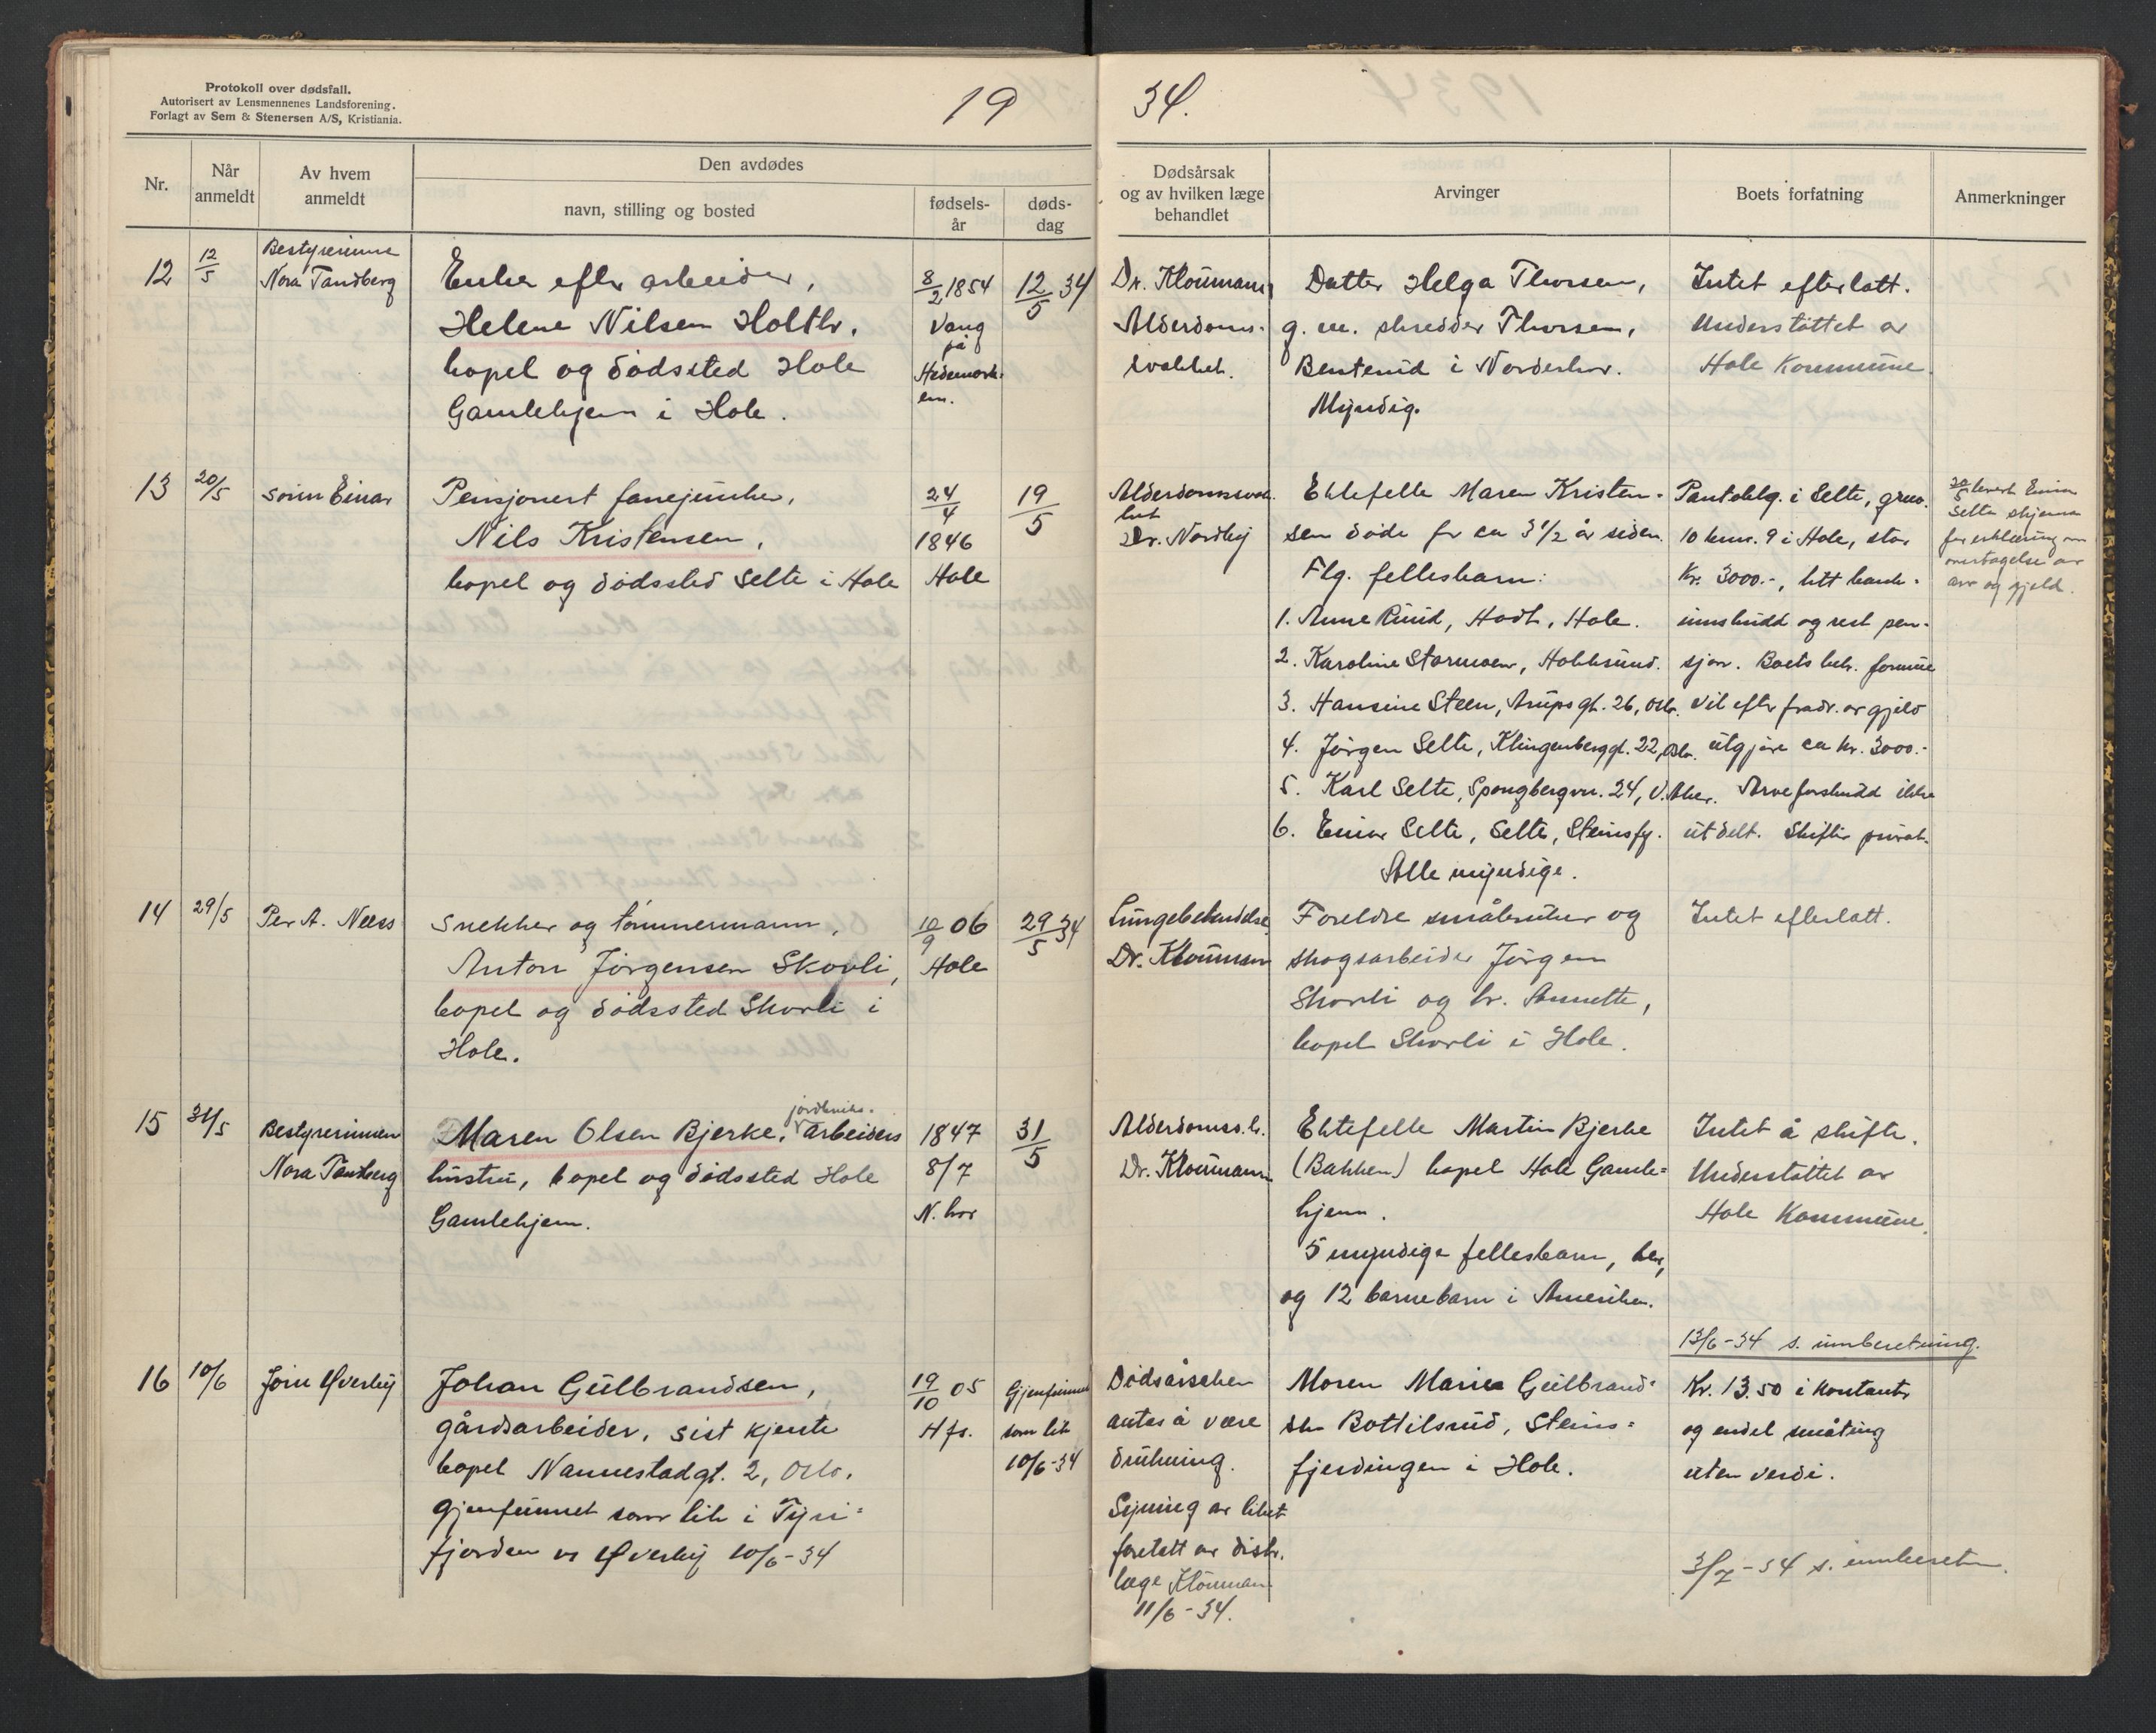 Protokoll over dødsfall.
Autorisert av Lensmennenes Landsforening.
Forlagt av Sem & Stenersen A/S, Kristiania.
19
34.
Nr.
Når
anmeldt
Av hvem
anmeldt
Den avdødes
navn, stilling og bosted
fødsels-
år
døds-
dag
Dødsårsak
og av hvilken læge
behandlet
Arvinger
Boets forfatning
Anmerkninger
12
12/5
Bestyrerinne
Nora Tandberg
Enke efter arbeider,
Helene Nilsen Holthe,
bopel og dødssted Hole
Gamlehjem i Hole.
8/2 1854
Vang
på
Hedemark-
en.
12/5 34
Dr. Kloumann
Alderdoms-
svakhet.
Datter Helga Thorsen,
g. m. skredder Thorsen,
Benterud i Norderhov.
Myndig.
Intet efterlatt.
Understøttet av
Hole Kommune.
13
20/5
sønn Einar
Pensjonert fanejunker,
Nils Kristensen,
bopel og dødssted Selte i Hole
24/4
1846
Hole
19/5
Alderdomssvak-
het
Dr. Nordby
Ektefelle Maren Kristen-
sen døde for ca 3 1/2 år siden.
Flg. fellesbarn:
1. Anne Ruud, Hovt, Hole.
2. Karoline Stormoen, Hokksund.
3. Hansine Steen, Arups gt. 26, Oslo.
4. Jørgen Selte, Klingenberggt. 22, Oslo.
5. Karl Selte, Spongbergvn. 24, V. Aker.
6. Einar Selte, Selte, Steinsfj.
Alle myndige.
Panteblg. i Selte, grno.
10 brnr. 9 i Hole, stor
Kr. 3000.-, litt bank-
innskudd og rest pen-
sjon. Boets beh. formue
vil efter fradr. av gjeld
utgjøre ca kr. 3000.-
Arveforskudd ikke
utdelt. Skifter privat.
20/5 levert Einar
Selte skjema
for erklæring om
overtagelse av
arv og gjeld.
14
29/5
Per A. Næss
Snekker og tømmermann,
Anton Jørgensen Skovli,
bopel og dødssted Skovli i
Hole.
10/9 06
Hole
29/5 34
Lungebetendelse
Dr. Kloumann
Foreldre småbruker og
skogsarbeider Jørgen
Skovli og h. Annette,
bopel Skovli i Hole.
Intet efterlatt.
15
31/5
Bestyrerinnen
Nora Tandberg
Maren Olsen Bjerke, jordbruks-
arbeiders
hustru, bopel og dødssted Hole
Gamlehjem.
1847
8/7
N. hov
31/5
Alderdomss.h.
Dr. Kloumann
Ektefelle Martin Bjerke
(Bakken) bopel Hole Gamle-
hjem.
5 myndige fellesbarn,
og 12 barnebarn i Amerika.
Intet å skifte.
Understøttet av
Hole Kommune.
13/6-34 s. innberetning.
16
10/6
Jørn Øverby
Johan Gulbrandsen,
gårdsarbeider, sist kjente
bopel Nannestadgt. 2, Oslo.
gjenfunnet som lik i Tyri-
fjorden v. Øverby 10/6-34
19/10 05
Hfs.
Gjenfunnet
som lik
10/6-34
Dødsårsaken
antas å være
drukning.
Syning av liket
foretatt av distr.
læge Kloumann
11/6-34.
Moren Marie Gulbrand-
sen Bottilsrud, Steins-
fjerdingen i Hole.
Kr. 13.50 i kontanter
og endel småting
uten verdi.
3/7-34 s. innberetn.